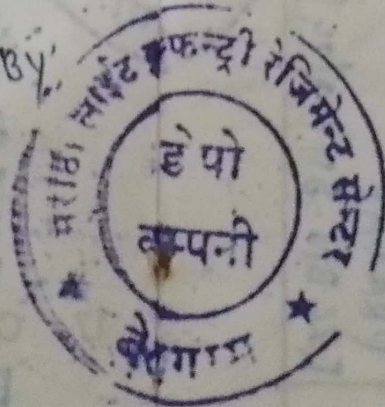 By:
मराठा लाईट इफन्ट्री रेजिमेन्ट सेन्टर
डेपो
कम्पनी
बेलगाम